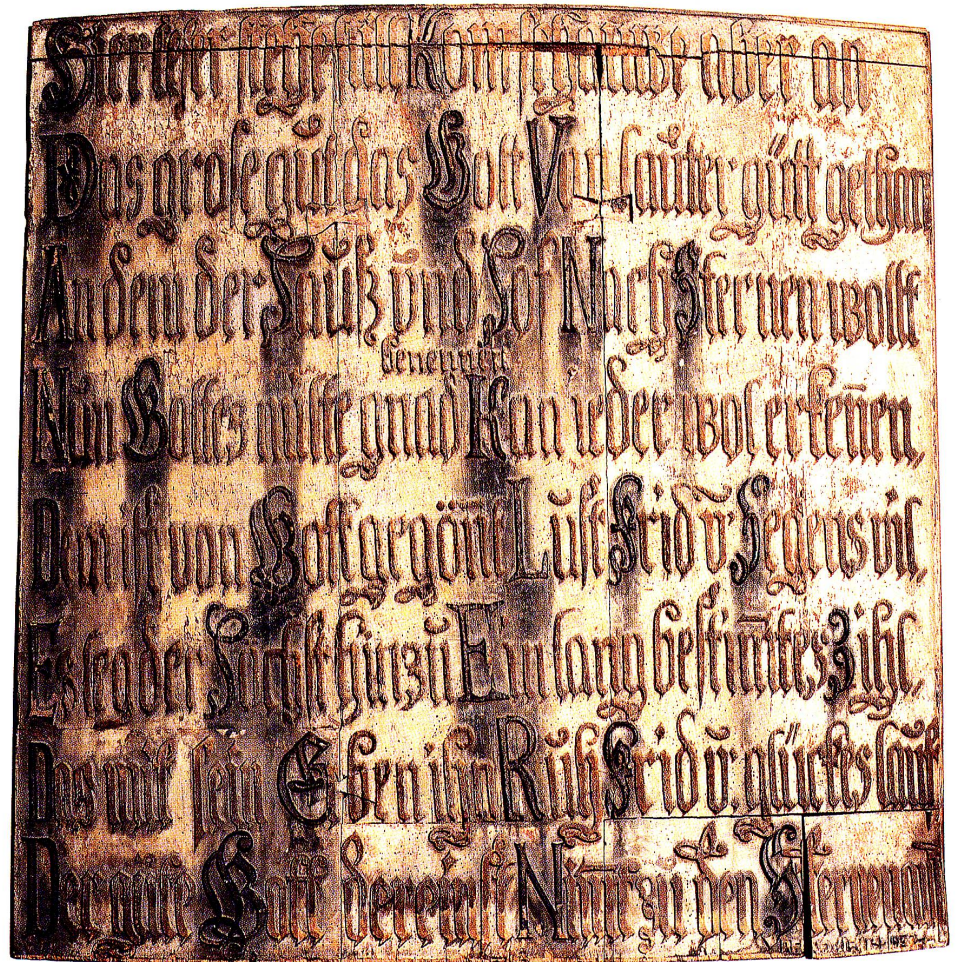 Hier leser stehe still Kom schauwe aber an
Das grose gut das Gott Von lauter gütt gethan
An dem der Hauß vnd Hof Nach Sternen wolt
benennen
Nun Gottes milte gnad Kan ieder wol erkeñen,
Dem ist von Gott gegönt Lust Frid v̄ Segens vil,
Es der hinzu Ein lang bestim̄tes Zihl,
Das mit sein Erben ihm Ruh Frid v̄. glückes lauf
Der güte Gott dereinst Nimt zu den Sternen auf